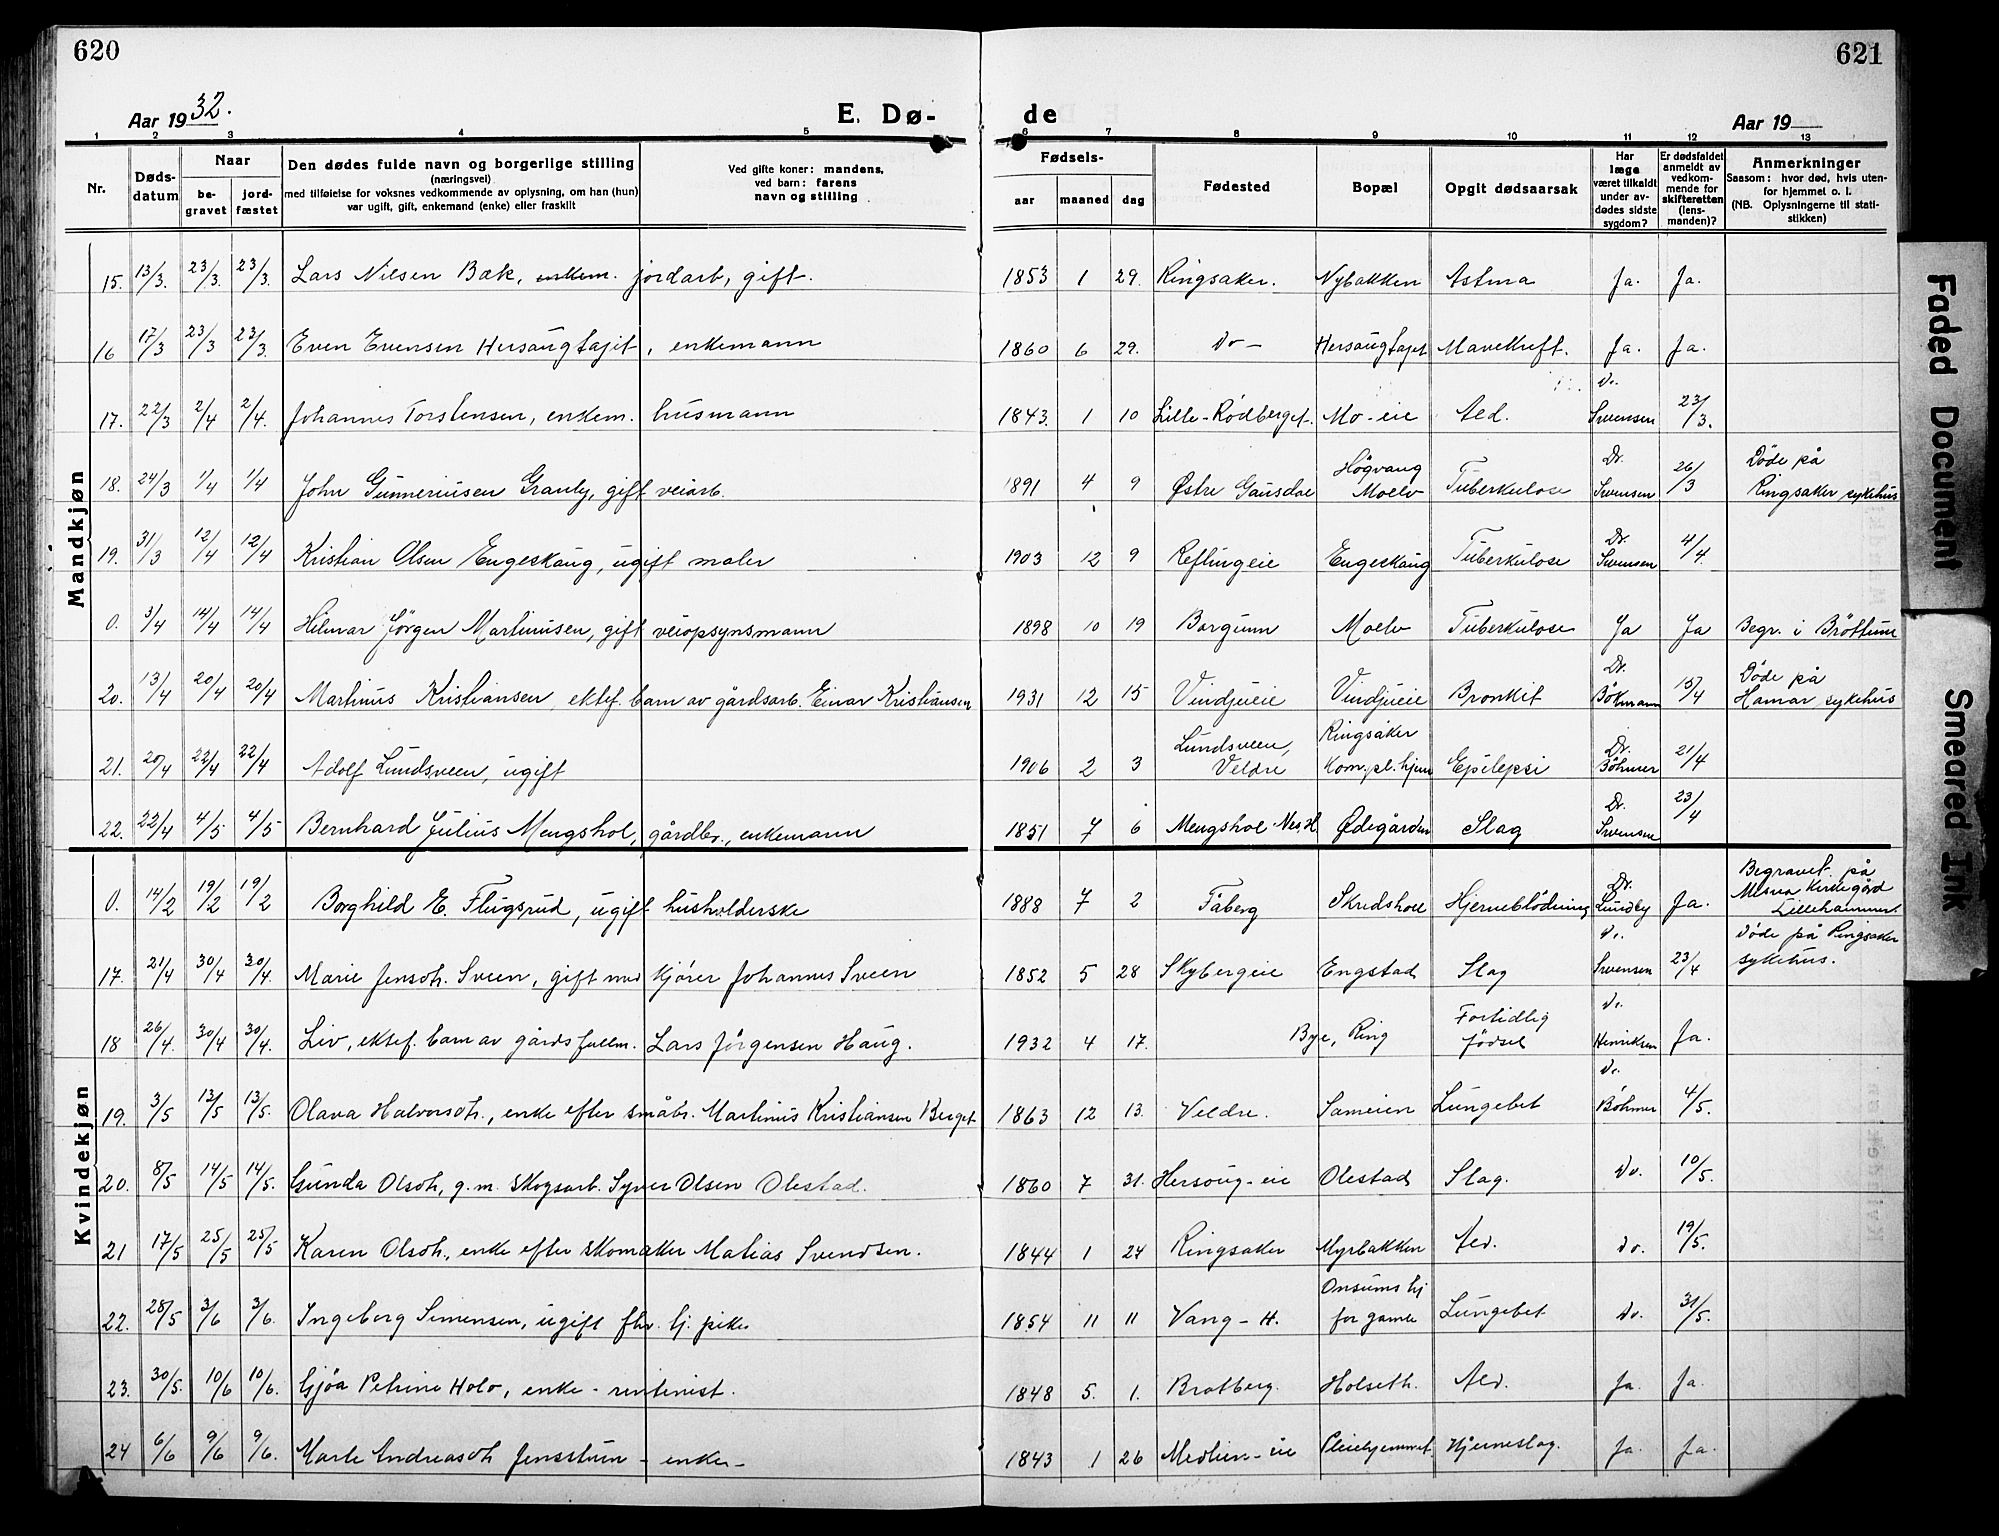 620
621
Aar 1932.
E. Dø-
de
Aar 19
1 2 3 4 5 6 7 8 9 10 11 12 13
Nr.
Døds-
datum
Naar
be-
gravet
jord-
fæstet
Den dødes fulde navn og borgerlige stilling
(næringsvei)
med tilføielse for voksnes vedkommende av oplysning, om han (hun)
var ugift, gift, enkemand (enke) eller fraskilt
Ved gifte koner: mandens,
ved barn: farens
navn og stilling
Fødsels-
aar
maaned
dag
Fødested
Bopæl
Opgit dødsaarsak
Har
læge
været tilkaldt
under av-
dødes sidste
sygdom?
Er dødsfaldet
anmeldt av
vedkom-
mende for
skifteretten
(lens-
manden)?
Anmerkninger
Saasom: hvor død, hvis uten-
for hjemmet o. l.
(NB. Oplysningerne til stati-
stikken)
Mandkjøn
15. 13/3. 23/3. 23/3. Lars Nilsen Bæk, enkem. jordarb, gift. 1853 1 29. Ringsaker. Nybakken Astma Ja. Ja.
16 17/3 23/3 23/3. Even Evensen Hersaugtajet, enkemann 1860 6 29. Do- Hersaugtajet Mavekreft. Ja. Ja.
17. 22/3 2/4 2/4. Johannes Torstensen, enkem. husmann 1843. 1 10 Lille-Rødberget. Mo-eie Aed. Dr. Svensen 23/3.
18. 24/3 1/4 1/4 John Gunneriusen Granly, gift veiarb. 1891 4 9 Østre Gausdal Høgvang Moelv Tuberkulose Dr. Svensen 26/3 Døde på Ringsaker sykehus
19. 31/3 12/4 12/4 Kristian Olsen Engeskaug, ugift maler 1903 12 9 Reflingeie Engeskaug Tuberkulose Dr. Svensen 4/4.
0. 3/4 14/4 14/4 Hilmar Jørgen Martinusen, gift veiopsynsmann 1898 10 19 Borgunn Moelv Tuberkulose Ja Ja Begr. i Brøttum
20. 13/4 20/4 20/4 Martinus Kristiansen, ektef. barn av gårdsarb. Einar Kristiansen 1931 12 15 Vindjueie Vindjueie Bronkit Dr. Bökmann 15/4 Døde på Hamar sykehus
21. 20/4 22/4 22/4 Adolf Lundsveen, ugift 1906 2 3 Lundsveen, Veldre Ringsaker Kom. pl. hjem Epilepsi Dr. Böhmer 21/4
22. 22/4 4/5 4/5 Bernhard Julius Mengshol, gårdbr., enkemann 1851 7 6 Mengshol Nes, H. Ødegården Slag Dr. Svensen 23/4
Kvindekjøn
0. 14/2 19/2 19/2 Borghild E. Flugsrud, ugift husholderske 1888 7 2 Fåberg Skredshol Hjerneblödning Dr. Lundby Ja. Begravet på Mesna Kirkegård Lillehammer.
17. 21/4 30/4 30/4. Marie Jensdh. Sveen, gift med kjører Johannes Sveen 1852 5 28 Skybergeie Engstad Slag Dr. Svensen 23/4 Døde på Ringsaker sykehus.
18 26/4. 30/4 30/4. Liv, ektef. barn av gårdsfullm. Lars Jørgensen Haug. 1932 4 17. Bye, Ring Fortidlig fødsel Dr. Henriksen Ja.
19. 3/5 13/5 13/5. Olava Halvorsdh., enke efter småbr. Martinus Kristiansen Berget 1863 12 13. Veldre. Sameien Lungebet. Dr. Böhmer 4/5.
20. 8/5 14/5 14/5. Gunda Olsdh, g.m. skogsarb. Syver Olsen Olestad. 1860 7 31. Hersoug-eie Olestad Slag. Do. 10/5.
21 17/5 25/5 25/5 Karen Olsdh., enke efter skomaker Matias Svendsen. 1844 1 24 Ringsaker Myrbakken Aed. Do. 19/5.
22. 28/5 3/6 3/6. Ingeborg Simensen, ugift fhv. tj. pike. 1854 11 11 Vang-H. Onsums hj for gamle Lungebet. Do. 31/5.
23. 30/5. 10/6 10/6. Gjøa Petrine Holo, enke-rentenist. 1848 5. 1. Bratberg. Holseth. Aed. Ja. Ja.
24 6/6 9/6 9/6. Marte Andreasdh Jensstuen - enke- 1843 1 26 Medlien-eie Pleiehjemmet. Hjerneslag. Ja. Ja.
Faded Document
Smeared Ink